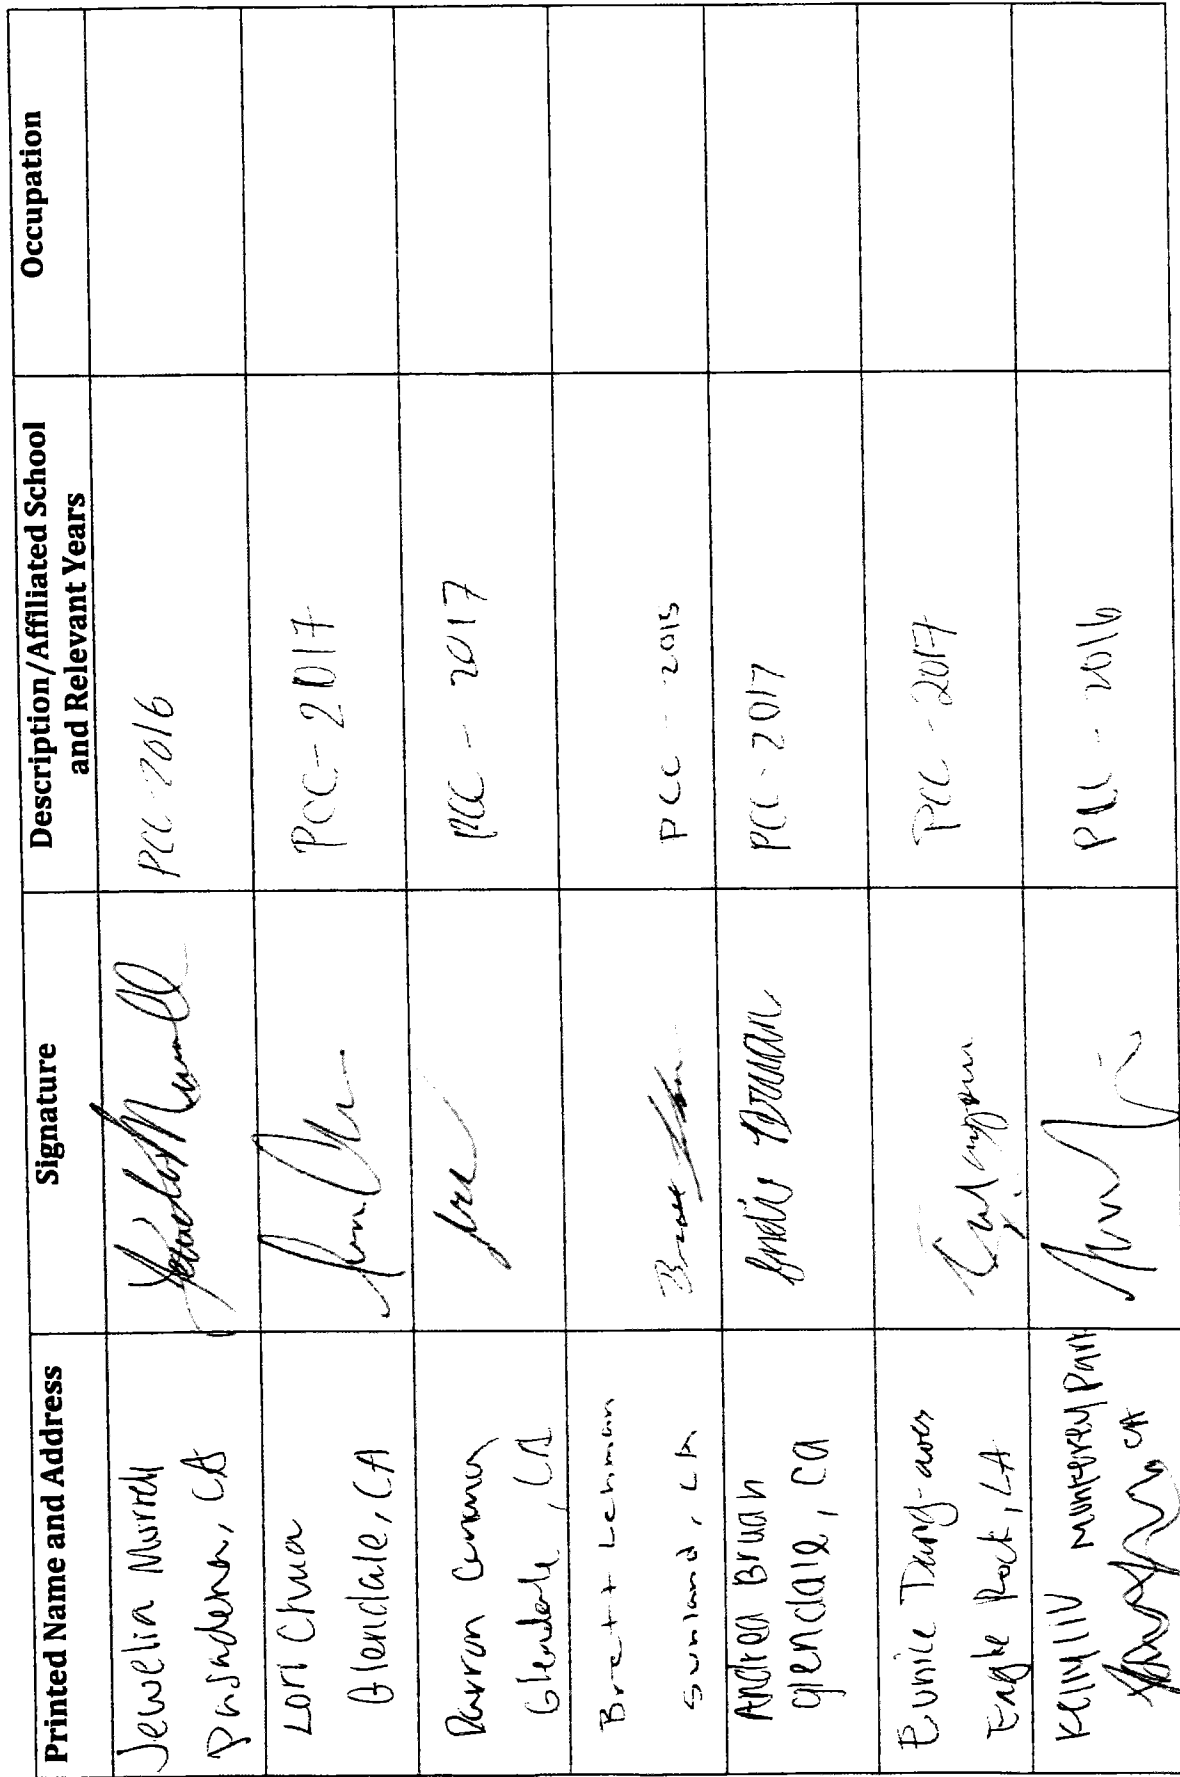 Printed Name and Address
Signature
Description/Affiliated School
and Relevant Years
Occupation
Jewelia Murrell
Pasadena, CA
PCC-2016
Lori Chua
Glendale, CA
PCC-2017
Darron
Glendale, CA
PCC - 2017
Brett Lehman
Sunland, CA
PCC - 2015
Andrea Bruan
glendale, ca
PCC-2017
Eunice
Eagle Rock, CA
PCC - 2017
Kelly Liv Monterey Park
CA
PCC - 2016